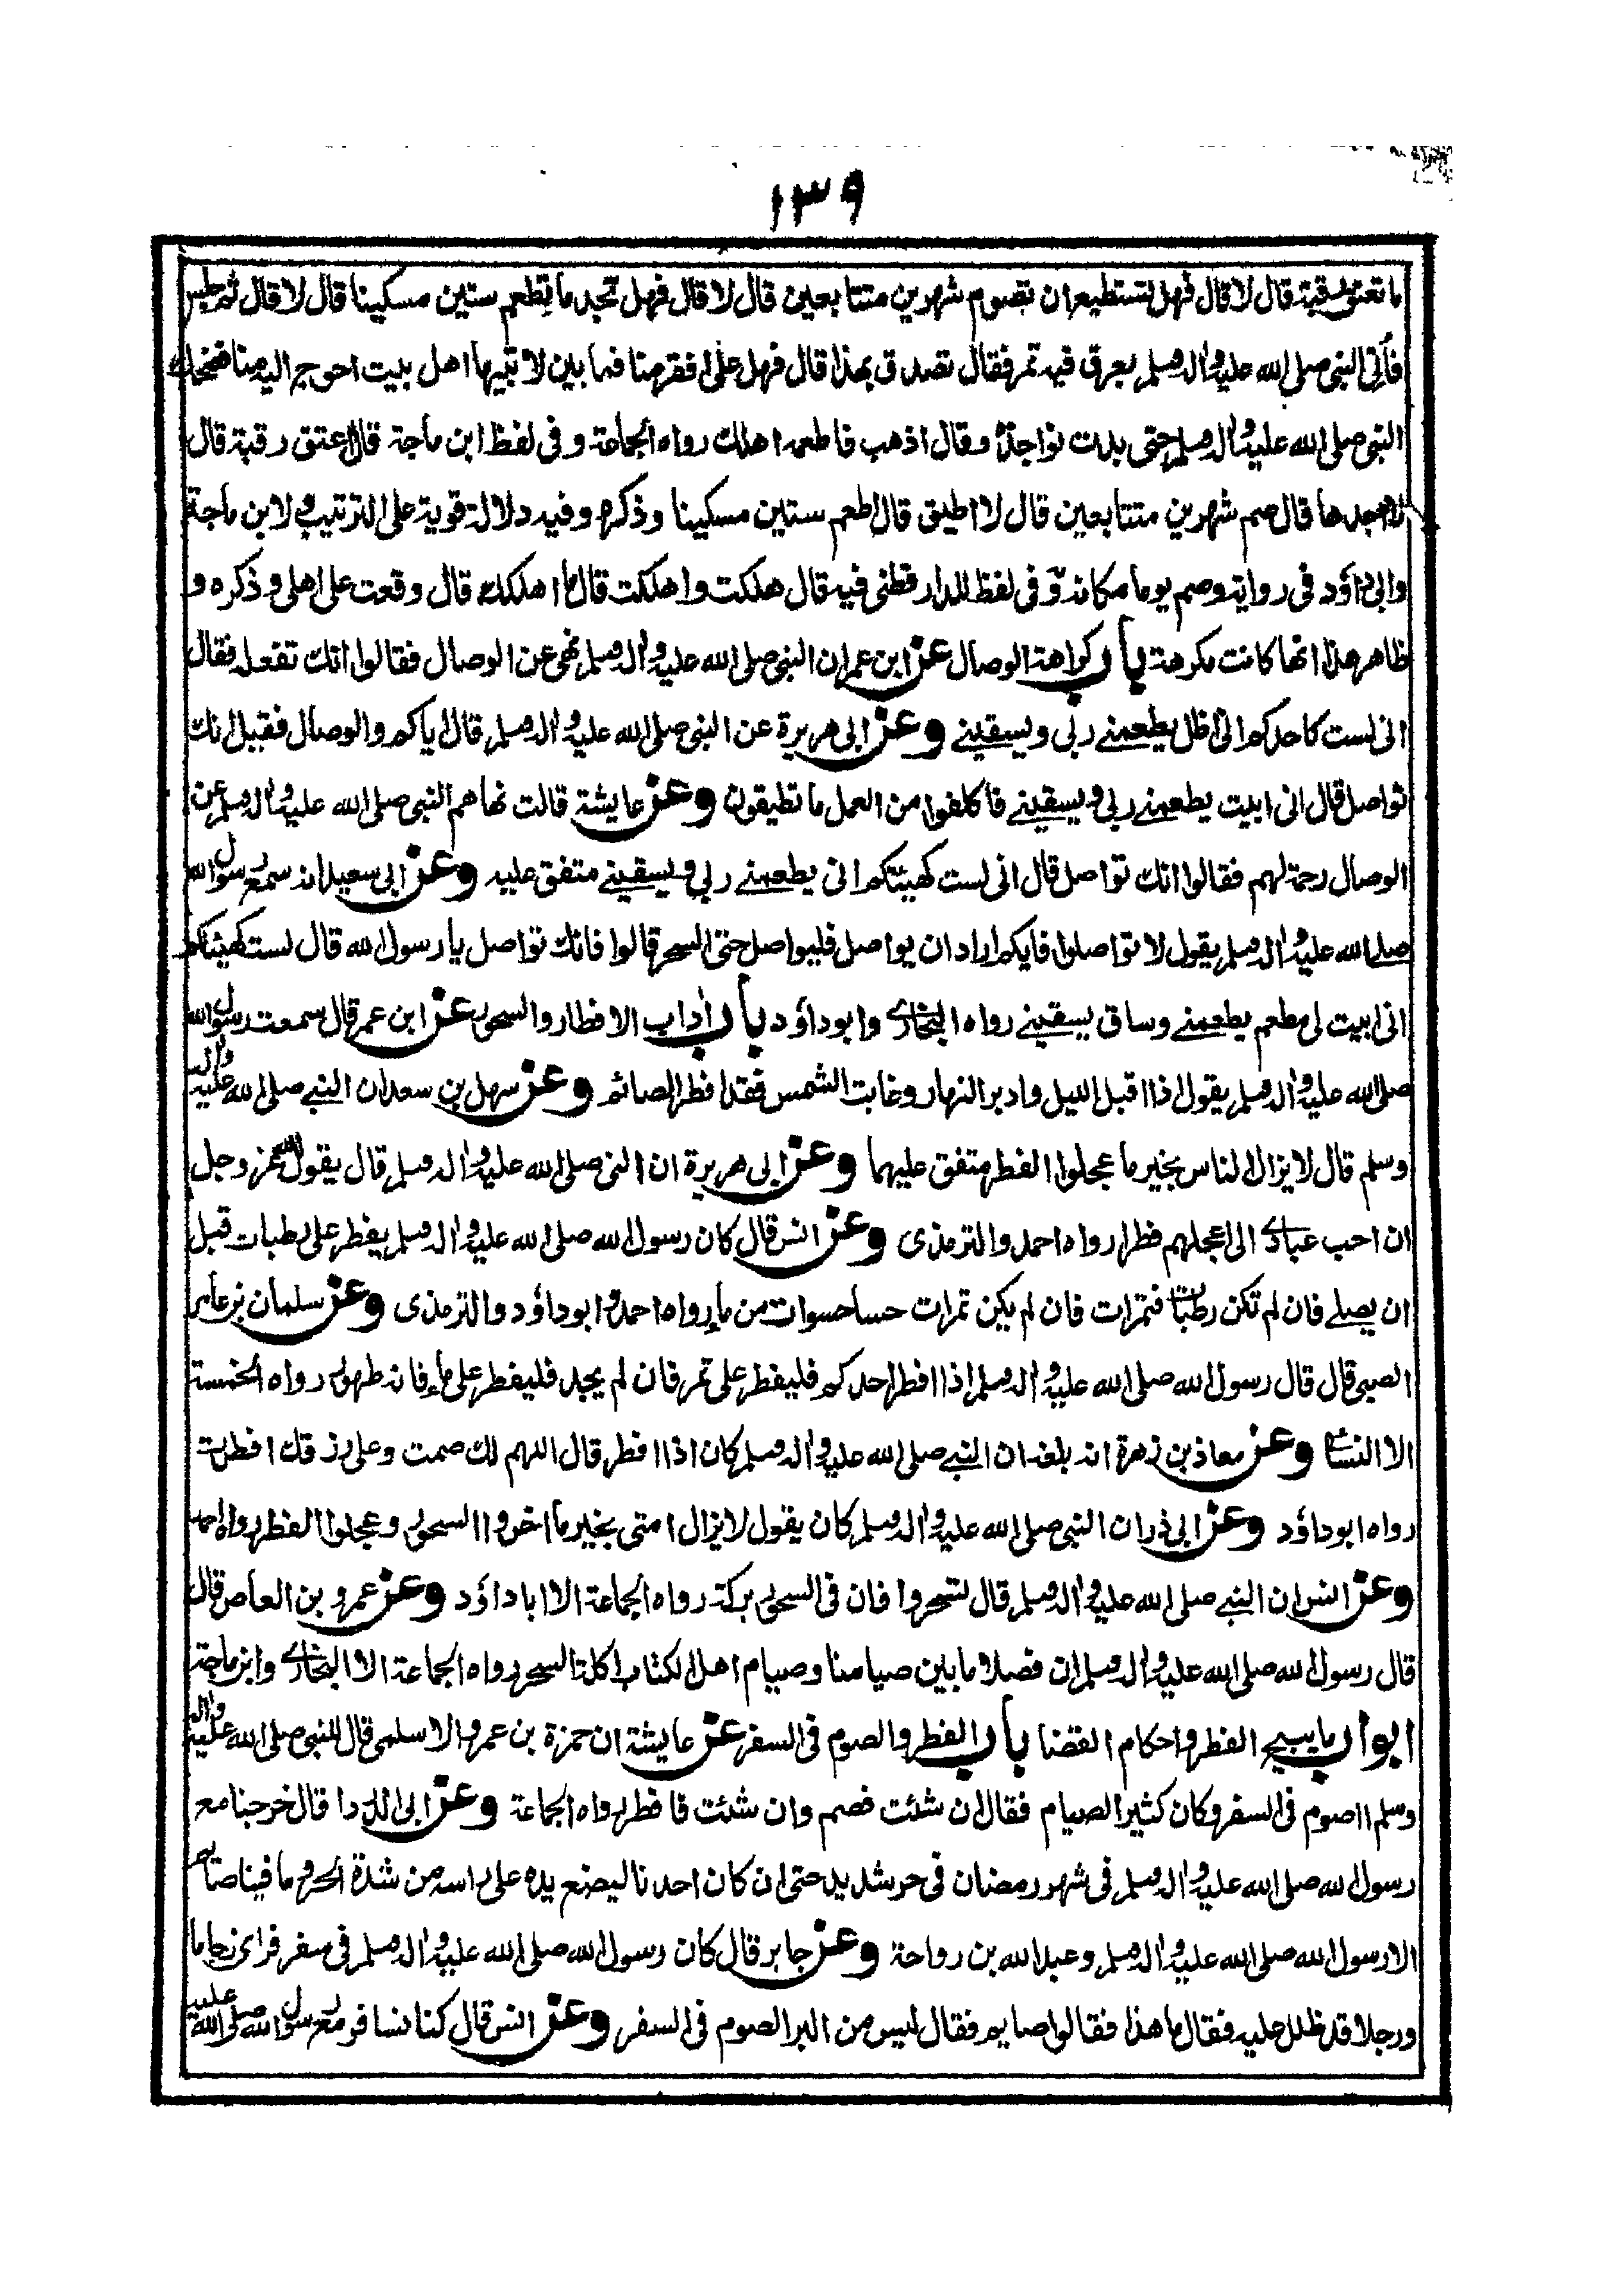 ١٣٩
ما تعتق رقبة قال لا قال فهل تستطيع ان تصوم شهرين متتابعين قال لا قال فهل تجد ما تطعم ستين مسكينا قال لا قال ثم جلس
فأتى النبى صلى الله عليه واله وسلم بعرق فيه تمر فقال تصدق بهذا قال فهل على افقر منا فما بين لابتيها اهل بيت احوج اليه منا فضحك
النبى صلى الله عليه واله وسلم حتى بدت نواجذه وقال اذهب فاطعمه اهلك رواه الجماعة وفى لفظ ابن ماجة قال اعتق رقبة قال
لا اجدها قال صم شهرين متتابعين قال لا اطيق قال اطعم ستين مسكينا وذكره وفيه دلالة قوية على الترتيب ولابن ماجة
وابى داؤد فى رواية وصم يوما مكانه وفى لفظ للدارقطنى فيه قال هلكت واهلكت قال ما اهلكك قال وقعت على اهلى وذكره و
ظاهر هذا انها كانت مكرهة باب كراهة الوصال عن ابن عمر ان النبى صلى الله عليه واله وسلم نهى عن الوصال فقالوا انك تفعله فقال
انى لست كاحدكم انى اظل يطعمنے ربى ويسقينے وعن ابى هريرة عن النبى صلى الله عليه واله وسلم قال اياكم والوصال فقيل انك
تواصل قال انى ابيت يطعمنے ربى ويسقينے فاكلفوا من العمل ما تطيقون وعن عايشة قالت نهاهم النبى صلى الله عليه واله وسلم عن
الوصال رحمة لهم فقالوا انك تواصل قال انى لست كهيئتكم انى يطعمنے ربى ويسقينے متفق عليه وعن ابى سعيد انه سمع رسول الله
صلى الله عليه واله وسلم يقول لا تواصلوا فايكم اراد ان يواصل فليواصل حتى السحر قالوا فانك تواصل يا رسول الله قال لست كهيئتكم
انى ابيت لى مطعم يطعمنے وساق يسقينے رواه البخارے وابوداؤد باب اداب الافطار والسحور عن ابن عمر قال سمعت رسول الله
صلى الله عليه واله وسلم يقول اذا اقبل الليل وادبر النهار وغابت الشمس فقد افطر الصائم وعن سهل بن سعد ان النبے صلى الله عليه واله
وسلم قال لا يزال الناس بخير ما عجلوا الفطر متفق عليهما وعن ابى هريرة ان النبى صلى الله عليه واله وسلم قال يقول الله عز وجل
ان احب عبادے الى اعجلهم فطرا رواه احمد والترمذى وعن انس قال كان رسول الله صلى الله عليه واله وسلم يفطر على رطبات قبل
ان يصلے فان لم تكن رطبات فتمرات فان لم يكن تمرات حسا حسوات من ماء رواه احمد وابوداؤد والترمذى وعن سلمان بن عامر
الضبى قال قال رسول الله صلى الله عليه واله وسلم اذا افطر احدكم فليفطر على تمر فان لم يجد فليفطر على ماء فانه طهور رواه الخمسة
الا النسائے وعن معاذ بن زهرة انه بلغه ان النبے صلى الله عليه واله وسلم كان اذا افطر قال اللهم لك صمت وعلى رزقك افطرت
رواه ابوداؤد وعن ابى ذر ان النبى صلى الله عليه واله وسلم كان يقول لا يزال امتى بخير ما اخروا السحور وعجلوا الفطر رواه احمد
وعن انس ان النبے صلى الله عليه واله وسلم قال تسحروا فان فى السحور بركة رواه الجماعة الا ابا داؤد وعن عمرو بن العاص قال
قال رسول الله صلى الله عليه واله وسلم ان فصلا ما بين صيامنا وصيام اهل الكتاب اكلة السحر رواه الجماعة الا البخارے وابن ماجة
ابواب ما يبيح الفطر واحكام القضا باب الفطر والصوم فى السفر عن عايشة ان حمزة بن عمرو الاسلمى قال للنبى صلى الله عليه واله
وسلم ااصوم فى السفر وكان كثير الصيام فقال ان شئت فصم وان شئت فافطر رواه الجماعة وعن ابى الدردا قال خرجنا مع
رسول الله صلى الله عليه واله وسلم فى شهر رمضان فى حر شديد حتى ان كان احدنا ليضع يده على راسه من شدة الحر وما فينا صائم
الا رسول الله صلى الله عليه واله وسلم وعبد الله بن رواحة وعن جابر قال كان رسول الله صلى الله عليه واله وسلم فى سفر فراى زحاما
ورجلا قد ظلل عليه فقال ما هذا فقالوا صايم فقال ليس من البر الصوم فى السفر وعن انس قال كنا نسافر مع رسول الله صلى الله عليه